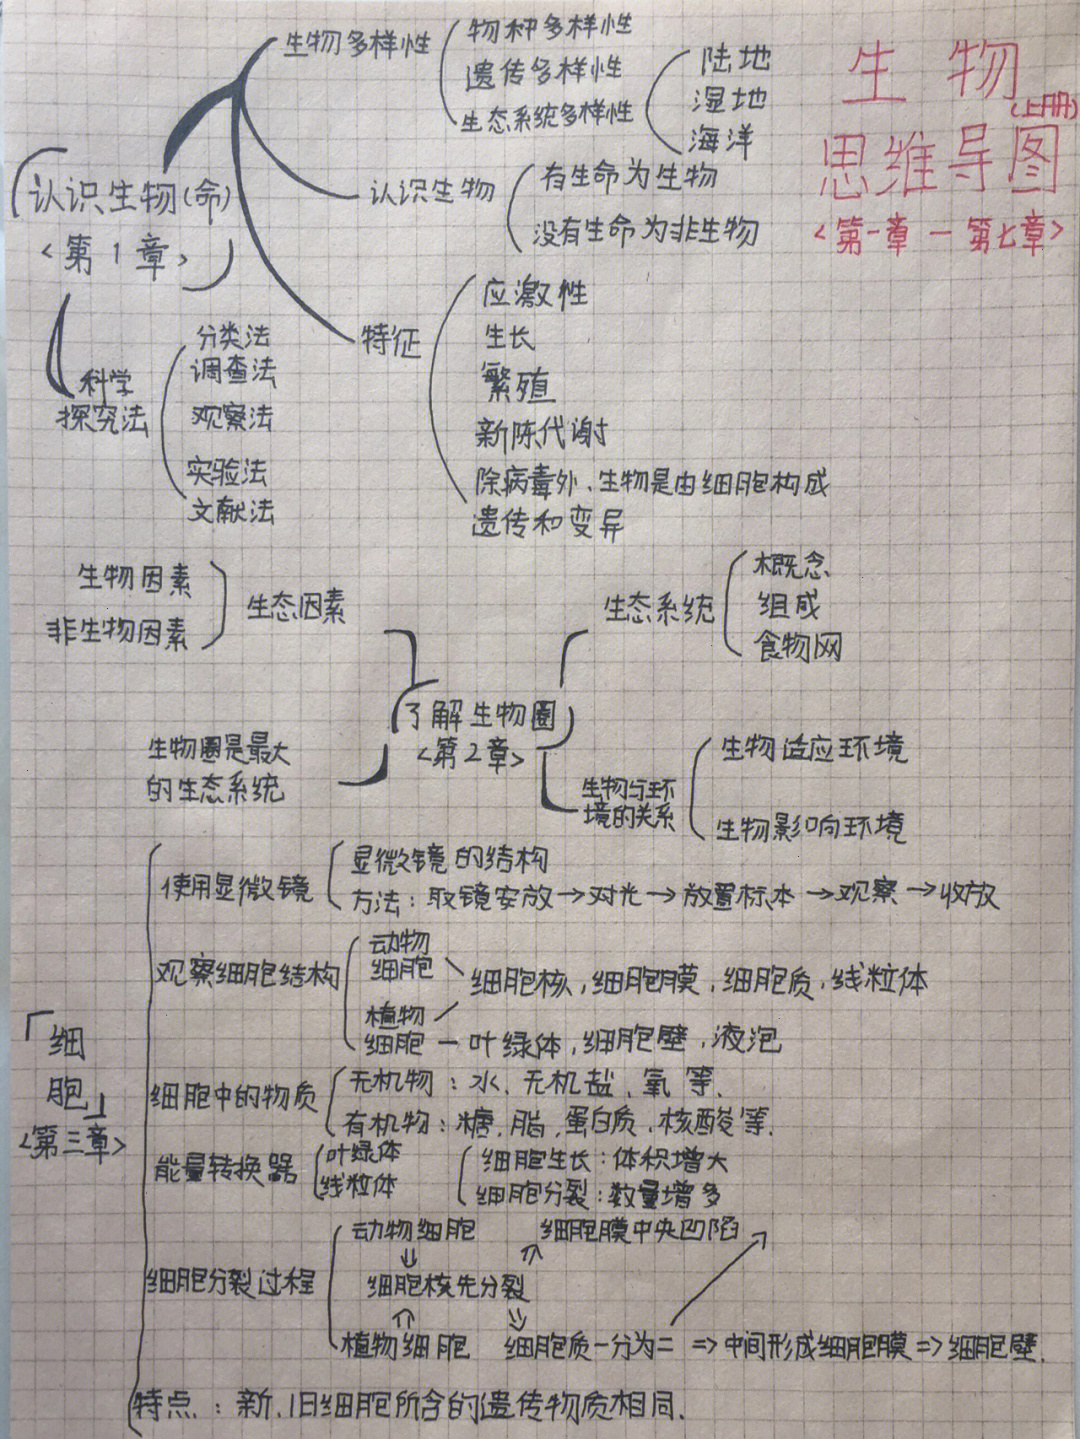 生物
(上册)
思维导图
<第一章—第七章>
认识生物(命)
<第1章>
生物多样性
物种多样性
遗传多样性
生态系统多样性
陆地
湿地
海洋
认识生物
有生命为生物
没有生命为非生物
特征
应激性
生长
繁殖
新陈代谢
除病毒外、生物是由细胞构成
遗传和变异
科学
探究法
分类法
调查法
观察法
实验法
文献法
了解生物圈
<第2章>
生态因素
生物因素
非生物因素
生态系统
概念
组成
食物网
生物圈是最大
的生态系统
生物与环
境的关系
生物适应环境
生物影响环境
「细
胞」
<第三章>
使用显微镜
显微镜的结构
方法:取镜安放→对光→放置标本→观察→收放
观察细胞结构
动物
细胞
细胞核,细胞膜,细胞质,线粒体
植物
细胞—叶绿体,细胞壁,液泡
细胞中的物质
无机物:水、无机盐、氧等.
有机物:糖、脂、蛋白质、核酸等.
能量转换器
叶绿体
线粒体
细胞生长:体积增大
细胞分裂:数量增多
细胞分裂过程
动物细胞
细胞膜中央凹陷
⇓
⇑
细胞核先分裂
⇑
⇓
植物细胞
细胞质一分为二⇒中间形成细胞膜⇒细胞壁.
特点:新、旧细胞所含的遗传物质相同.